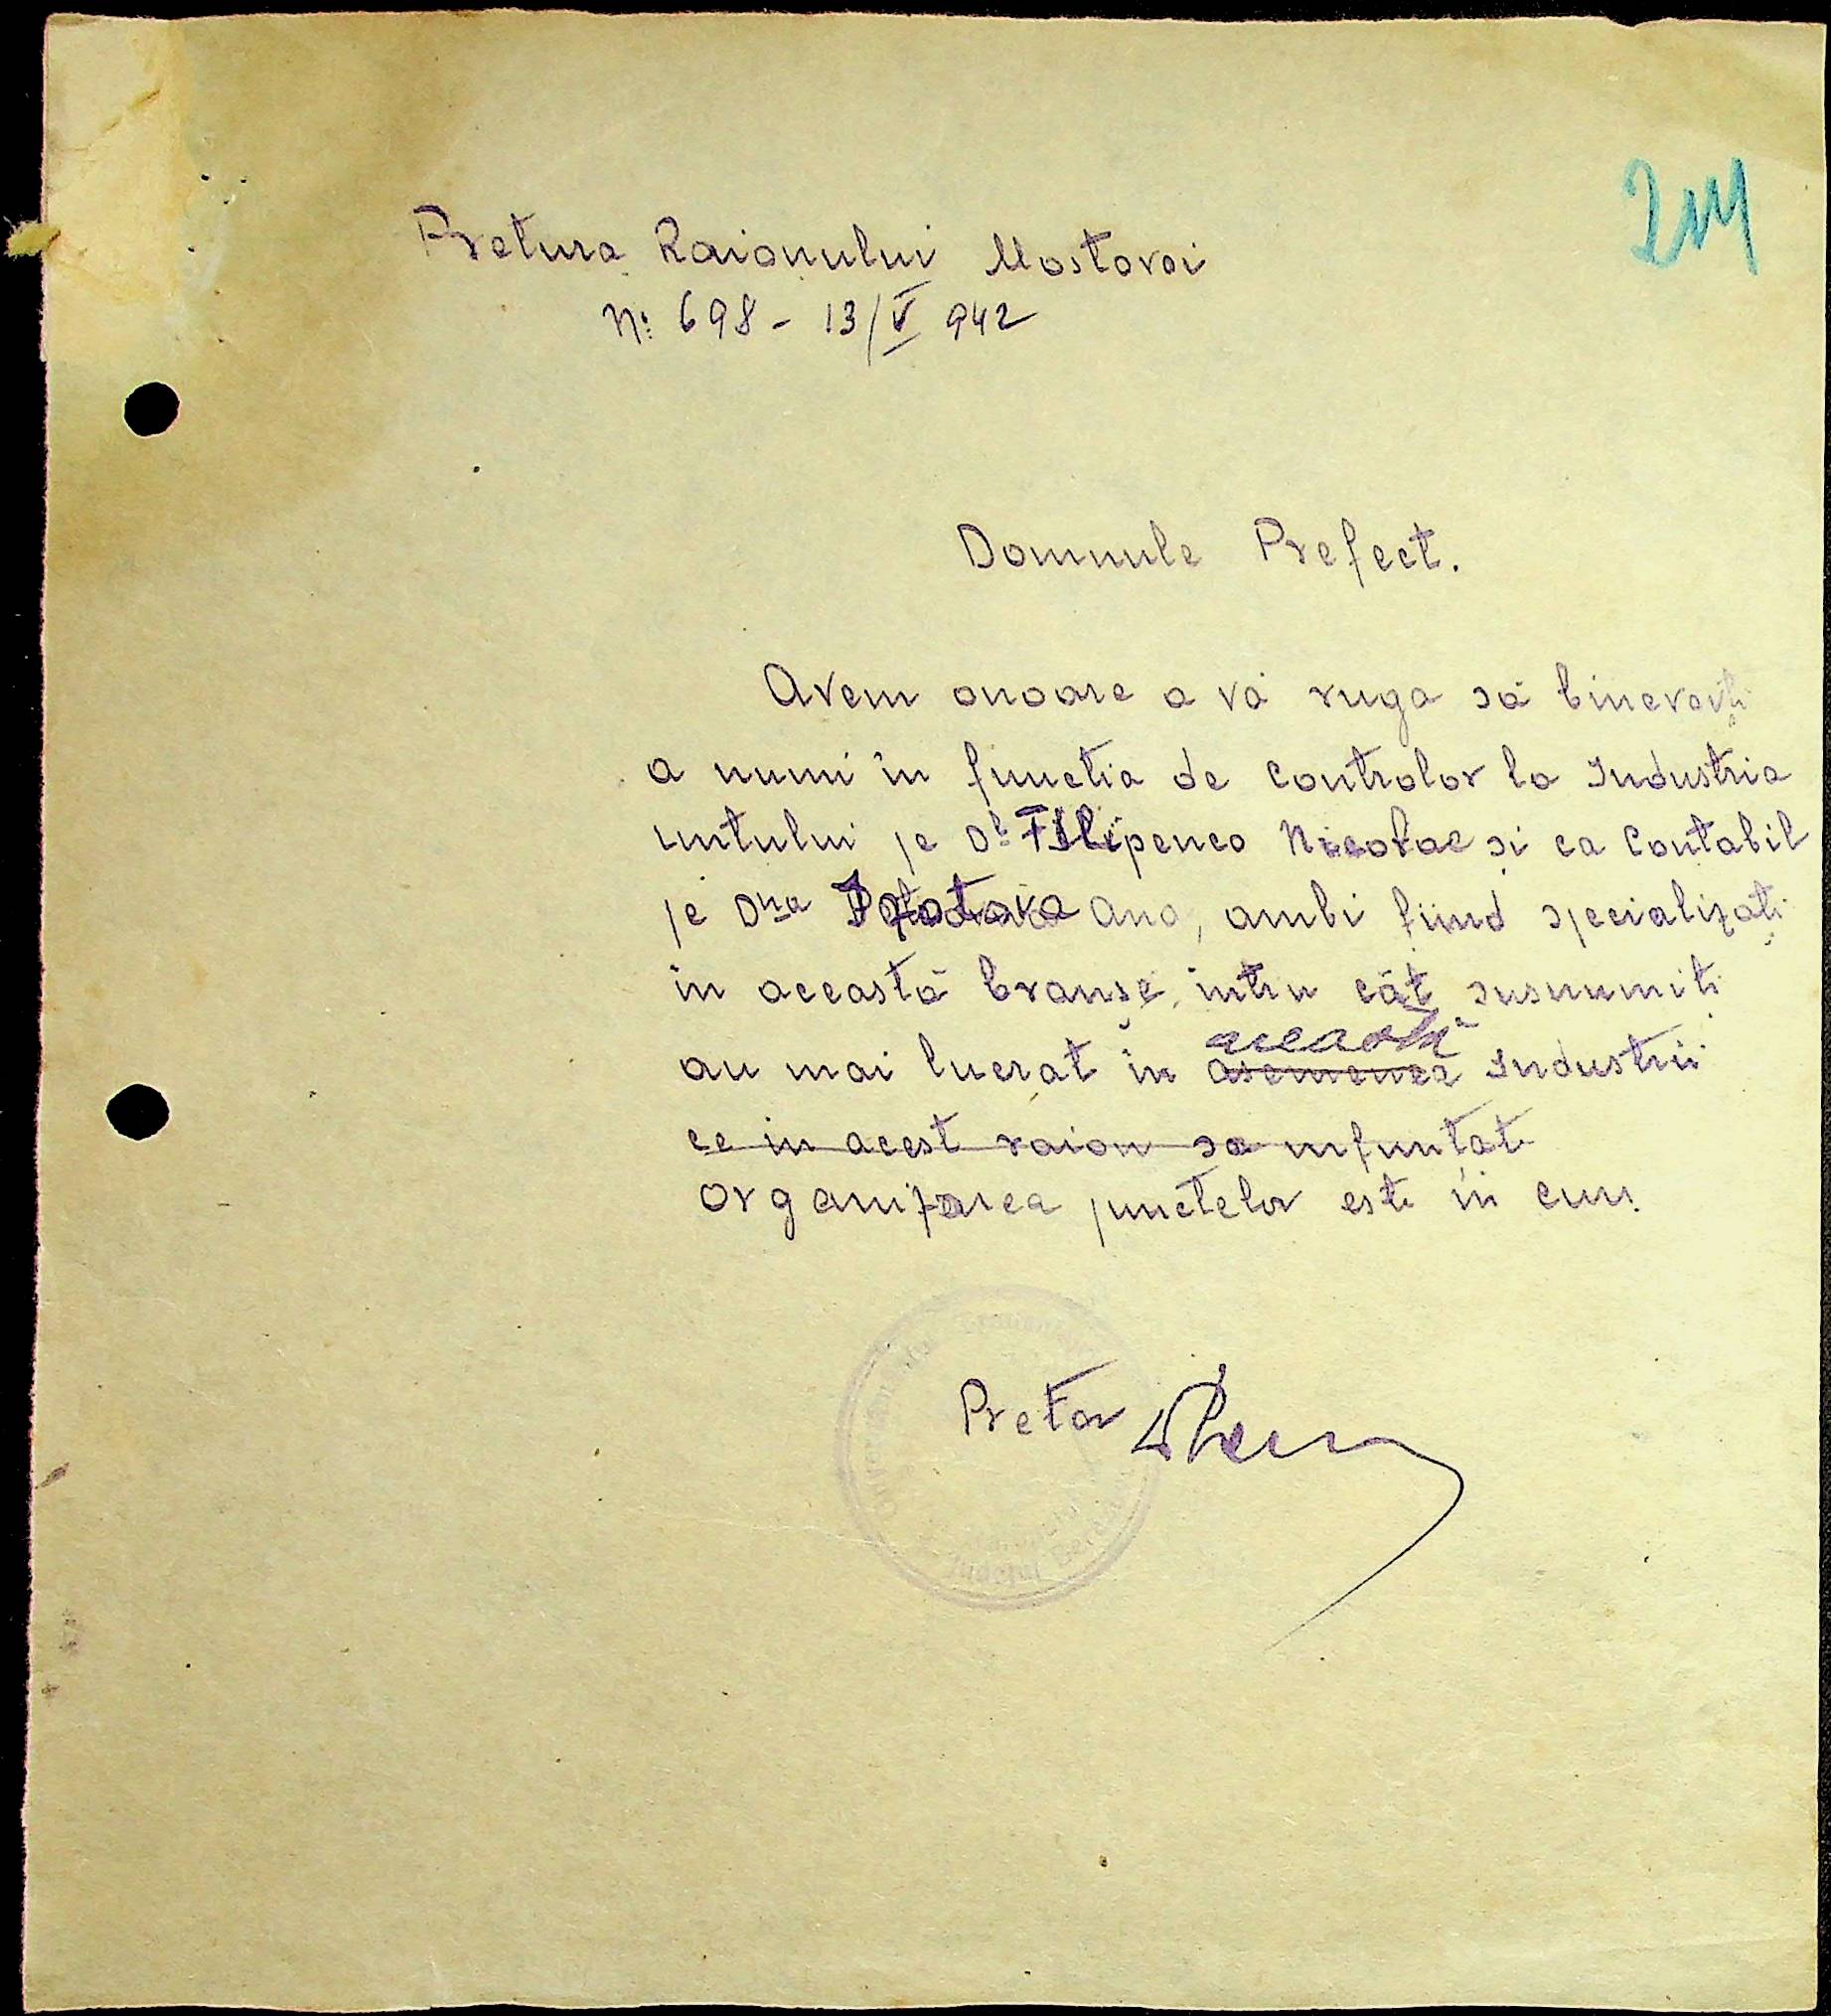 214
Pretura Raionului Mostovoi
N: 698 - 13/V 942
Domnule Prefect.
Avem onoare a vă ruga să binevoiți
a numi în funcția de controlor la Industria
untului pe Dl Filipenco Nicolae și ca Contabil
pe Dna Ana, ambi fiind specializați
în această branșe, intru cât susnumiți
au mai lucrat în asemenea această Industrii
ce in acest raion sa infuntat
Organizarea punctelor este in curs.
Pretor
Județul